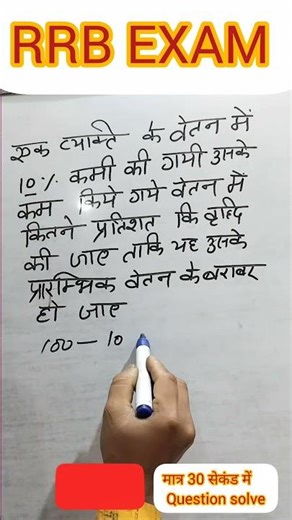 RRB EXAM
एक व्यक्ति के वेतन में
10% कमी की गयी उसके
कम किये गये वेतन में
कितने प्रतिशत कि वृद्धि
की जाए ताकि यह उसके
प्रारम्भिक वेतन के बराबर
हो जाए
100 - 10
मात्र 30 सेकंड में
Question solve